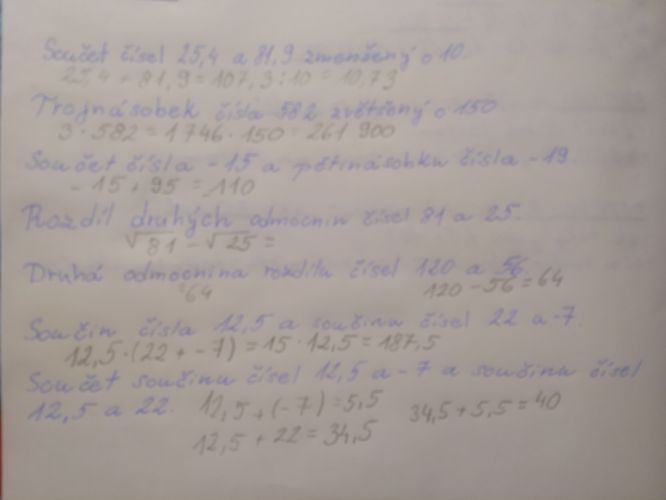 Součet čísel 25,4 a 81,9 zmenšený o 10.
25,4 + 81,9 = 107,3 : 10 = 10,73
Trojnásobek čísla 582 zvětšený o 150
3 · 582 = 1746 · 150 = 261 900
Součet čísla -15 a pětinásobku čísla -19.
- 15 + 95 = 110
Rozdíl druhých odmocnin čísel 81 a 25.
√81 - √25 =
Druhá odmocnina rozdílu čísel 120 a 56
=64 120 - 56 = 64
Součin čísla 12,5 a součinu čísel 22 a -7.
12,5 · (22 + -7) = 15 · 12,5 = 187,5
Součet součinu čísel 12,5 a -7 a součinu čísel
12,5 a 22. 12,5 + (-7) = 5,5 34,5 + 5,5 = 40
12,5 + 22 = 34,5